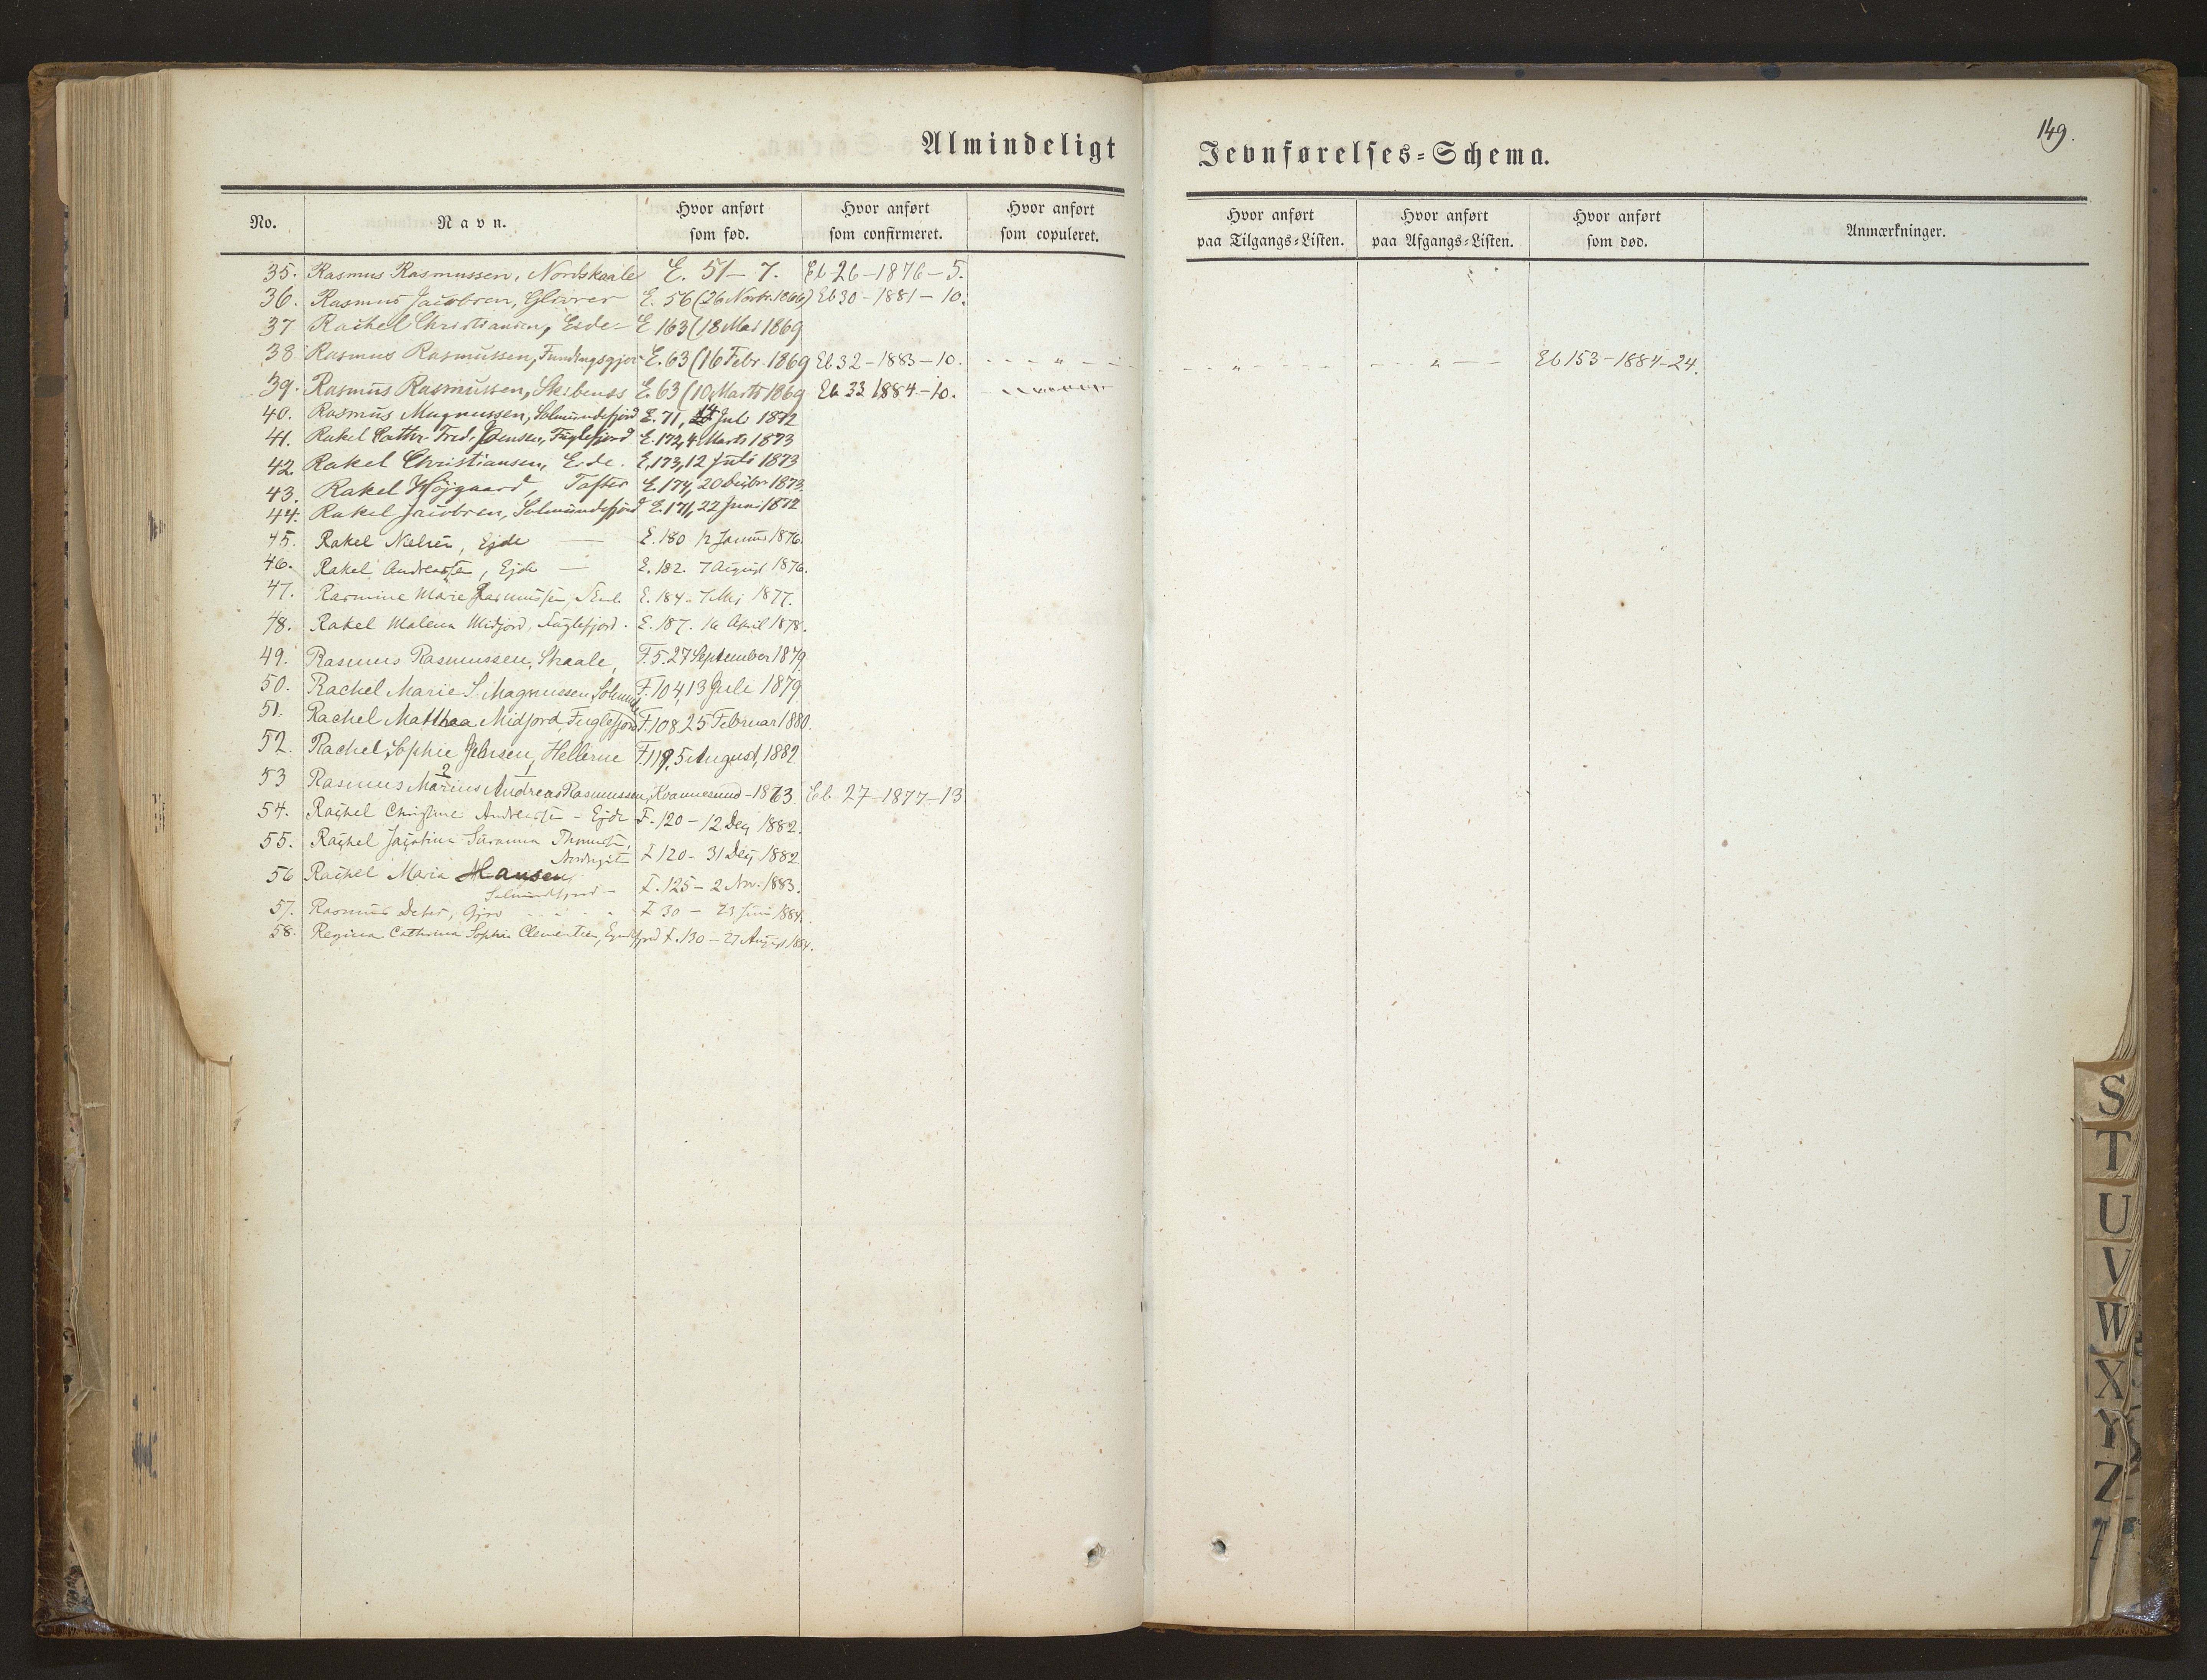 149.
Almindeligt Jevnførelses=Schema.
No. Navn. Hvor anført som fød. Hvor anført som confirmeret. Hvor anført som copuleret. Hvor anført paa Tilgangs=Listen. Hvor anført paa Afgangs=Listen. Hvor anført som død. Anmærkninger.
35. Rasmus Rasmussen, Nordskaale E. 51 – 7. Eb 26 – 1876 – 5.
36. Rasmus Jacobsen, Glivrer E. 56 (26 Novbr. 1866) Eb 30 – 1881 – 10.
37 Rachel Christiansen, Eide E 163 (18 Mai 1869
38 Rasmus Rasmussen, Fundingsgjov E. 63 (16 Febr. 1869 Eb 32 – 1883 – 10. - - - " - - - - - " - - - - - - " - - Eb 153 – 1884 – 24.
39. Rasmus Rasmussen, Skibenæs E. 63 (10 Marts 1869 Eb 33 1884 – 10.
40. Rasmus Magnussen, Solmundefjord E. 71, 14 Juli 1872
41. Rakel Cathr. Fred. Joensen, Fuglefjord E. 172, 4 Marts 1873
42. Rakel Christiansen, Eide. E. 173, 12 Juli 1873
43. Rakel Højgaard, Tofter E. 174, 20 Decbr 1873.
44. Rakel Jacobsen, Solmundefjord E. 171, 22 Juni 1872
45. Rakel Nelsen, Ejde — E. 180 12 Januar 1876.
46. Rakel Andreasen, Ejde — E. 182. 7 August 1876.
47. Rasmine Marie Rasmussen, E. 184. 7 Mai 1877.
48. Rakel Malena Midjord, Fuglefjord. E. 187. 16 April 1878.
49. Rasmus Rasmussen, Skaale, F. 5. 27 September 1879.
50. Rachel Marie S. Magnussen, Solmunde F. 104, 13 Juli 1879
51. Rachel Matthea Midjord, Fuglefjord F. 108. 25 Februar 1880.
52. Rachel Sophie Jensen, Hellerne F. 119, 5 August, 1882
53 Rasmus Marius Andreas Rasmussen, Kvannesund – 1863. Eb 27 – 1877 – 13
54. Rachel Christine Andreasen – Ejde F. 120 – 12 Dec 1882.
55. Rachel Jacobina Susanna Thomsen,
F 120 – 31 Dec 1882
56 Rachel Maria Hansen,
Solmundefjord – F. 125 – 2 Nov. 1883.
57. Rasmus Peter, Gjov F 30 – 23 Juni 1884.
58. Regina Cathrina Sophie Clementsen, F. 130 – 27 August 1884.
S
T
U
V
W
X
Y
Z